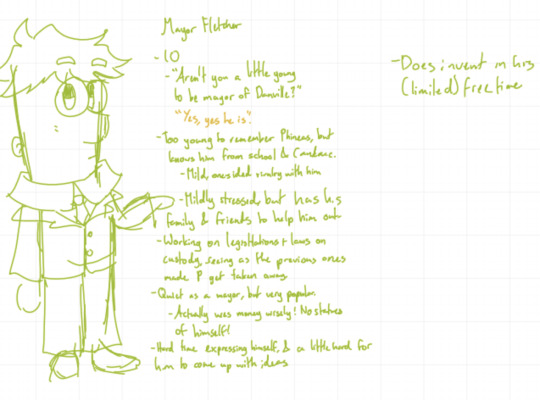 Mayor Fletcher
- 10
- "Aren't you a little young
to be mayor of Danville?"
"Yes, yes he is."
- Too young to remember Phineas, but
knows him from school & Candace.
- Mild, onesided rivalry with him
- Mildly stressed, but has his
family & friends to help him out
- Working on legislations & laws on
custody, seeing as the previous ones
made P get taken away.
- Quiet as a mayor, but very popular.
- Actually uses money wisely! No statues
of himself!
- Hard time expressing himself, & a little hard for
him to come up with ideas
- Does invent in his
(limited) free time